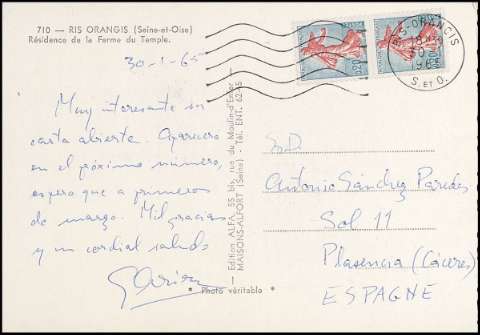 710 — RIS ORANGIS (Seine-et-Oise)
Résidence de la Ferme du Temple.
30-1-65
Muy interesante su
carta abierta. Aparecerá
en el próximo número,
espero que a primeros
de marzo. Mil gracias
y un cordial saludo
* Photo véritable *
Edition ALFA, 55 bis, rue du Moulin-d'Enfer
MAISONS-ALFORT (Seine) - Tél. ENT. 62-15
RIS-ORANGIS
S. ET O.
0,20
0,20
S.D.
Antonio Sánchez Paredes
Sol 11
Plasencia (Cáceres)
ESPAGNE